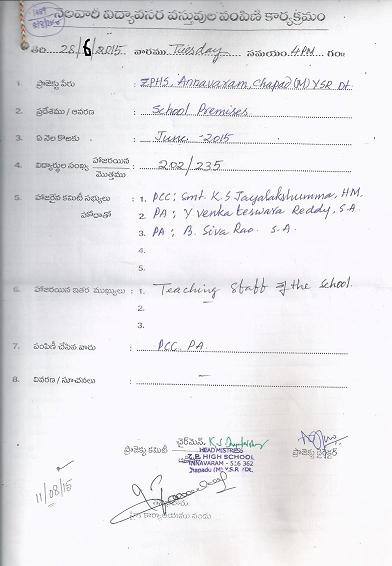 నెలవారీ విద్యావసర వస్తువుల పంపిణీ కార్యక్రమం
తేది. 28/6/2015 వారము Tuesday సమయం. 4PM గం॥
1. ప్రాజెక్టు పేరు : ZPHS. Annavaram, Chapad (M) YSR Dt.
2. ప్రదేశము / ఆవరణ : School Premises
3. ఏ నెల కొరకు : June - 2015
4. విద్యార్థుల సంఖ్య హాజరయిన / మొత్తము : 202/235
5. హాజరైన కమిటీ సభ్యులు : 1. PCC: Smt. K.S Jayalakshumma, HM.
హోదాతో 2. PA: Y Venkateswara Reddy, S.A.
3. PA: B. Siva Rao. S.A.
4.
5.
6. హాజరయిన ఇతర ముఖ్యులు : 1. Teaching Staff of the School.
2.
3.
7. పంపిణీ చేసిన వారు : PCC, PA.
8. వివరణ / సూచనలు : —
ఛైర్మెన్,
ప్రాజెక్టు కమిటీ
HEAD MISTRESS
Z.P. HIGH SCHOOL
ANNAVARAM - 516 362
Chapadu (M) Y.S.R. Dt.
ప్రాజెక్టు డైరెక్టర్
11/08/15